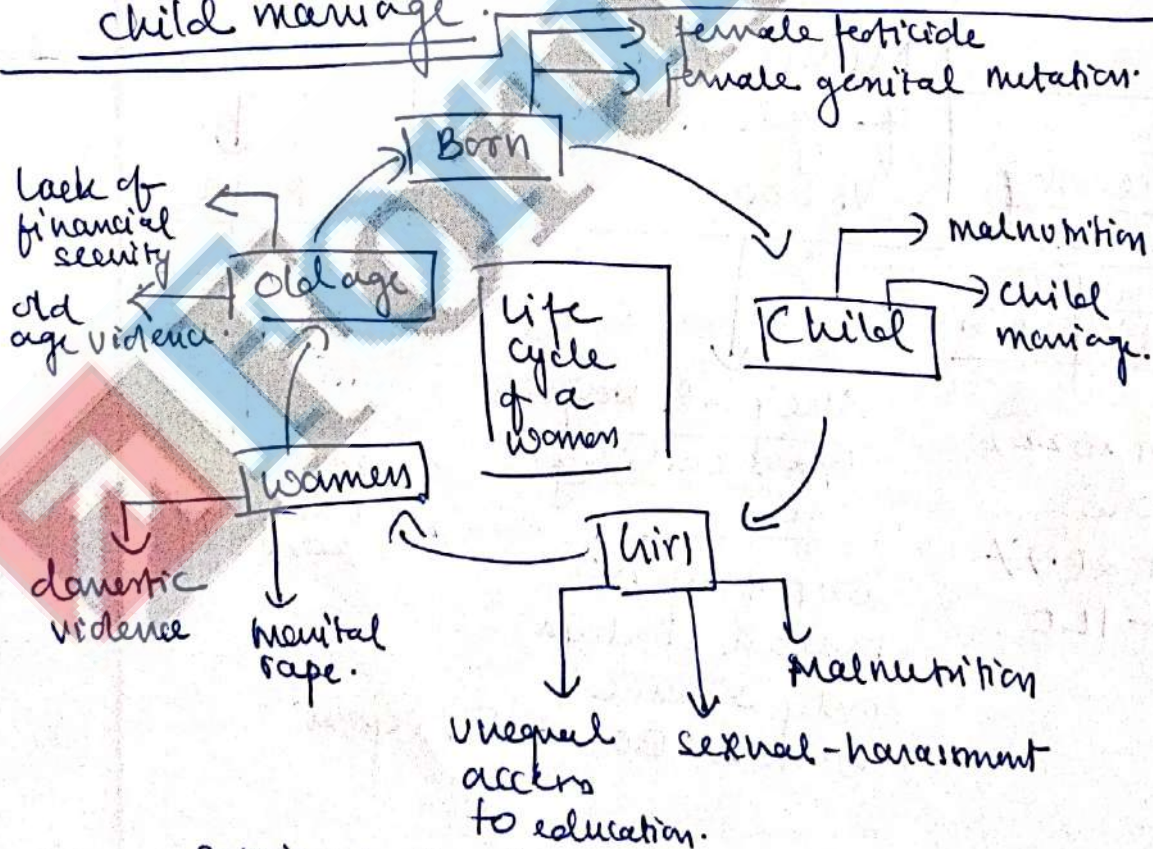 Child marriage.
female foeticide
female genital mutation.
Born
Lack of
financial
security
old
age violence.
Old age
Life
cycle
of a
women
malnutrition
child
marriage.
Child
Women
Girl
domestic
violence
marital
rape.
Malnutrition
unequal
access
to education.
sexual-harassment